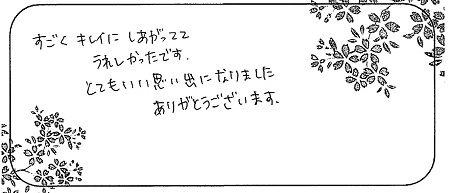 すごく キレイに しあがってて
うれしかったです.
とてもいい思い出になりました
ありがとうございます.